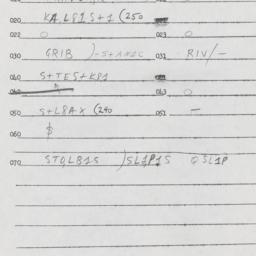 020 KA.L81S+1 (250
022 0 023 0
030 GRIB )-S+A 031 RIV/-
040 S+TES+K81
042 043 0
050 S+L8AX (240 051 -
060 $
070 STQLB1S )SL1P1S 0SL1P